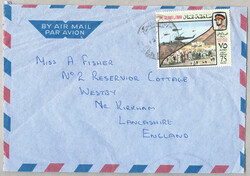 BY AIR MAIL
PAR AVION
75
MISS A FISHER
Nº2 RESERVOIR COTTAGE
WESTBY
NR. KIRKHAM
LANCASHIRE
ENGLAND